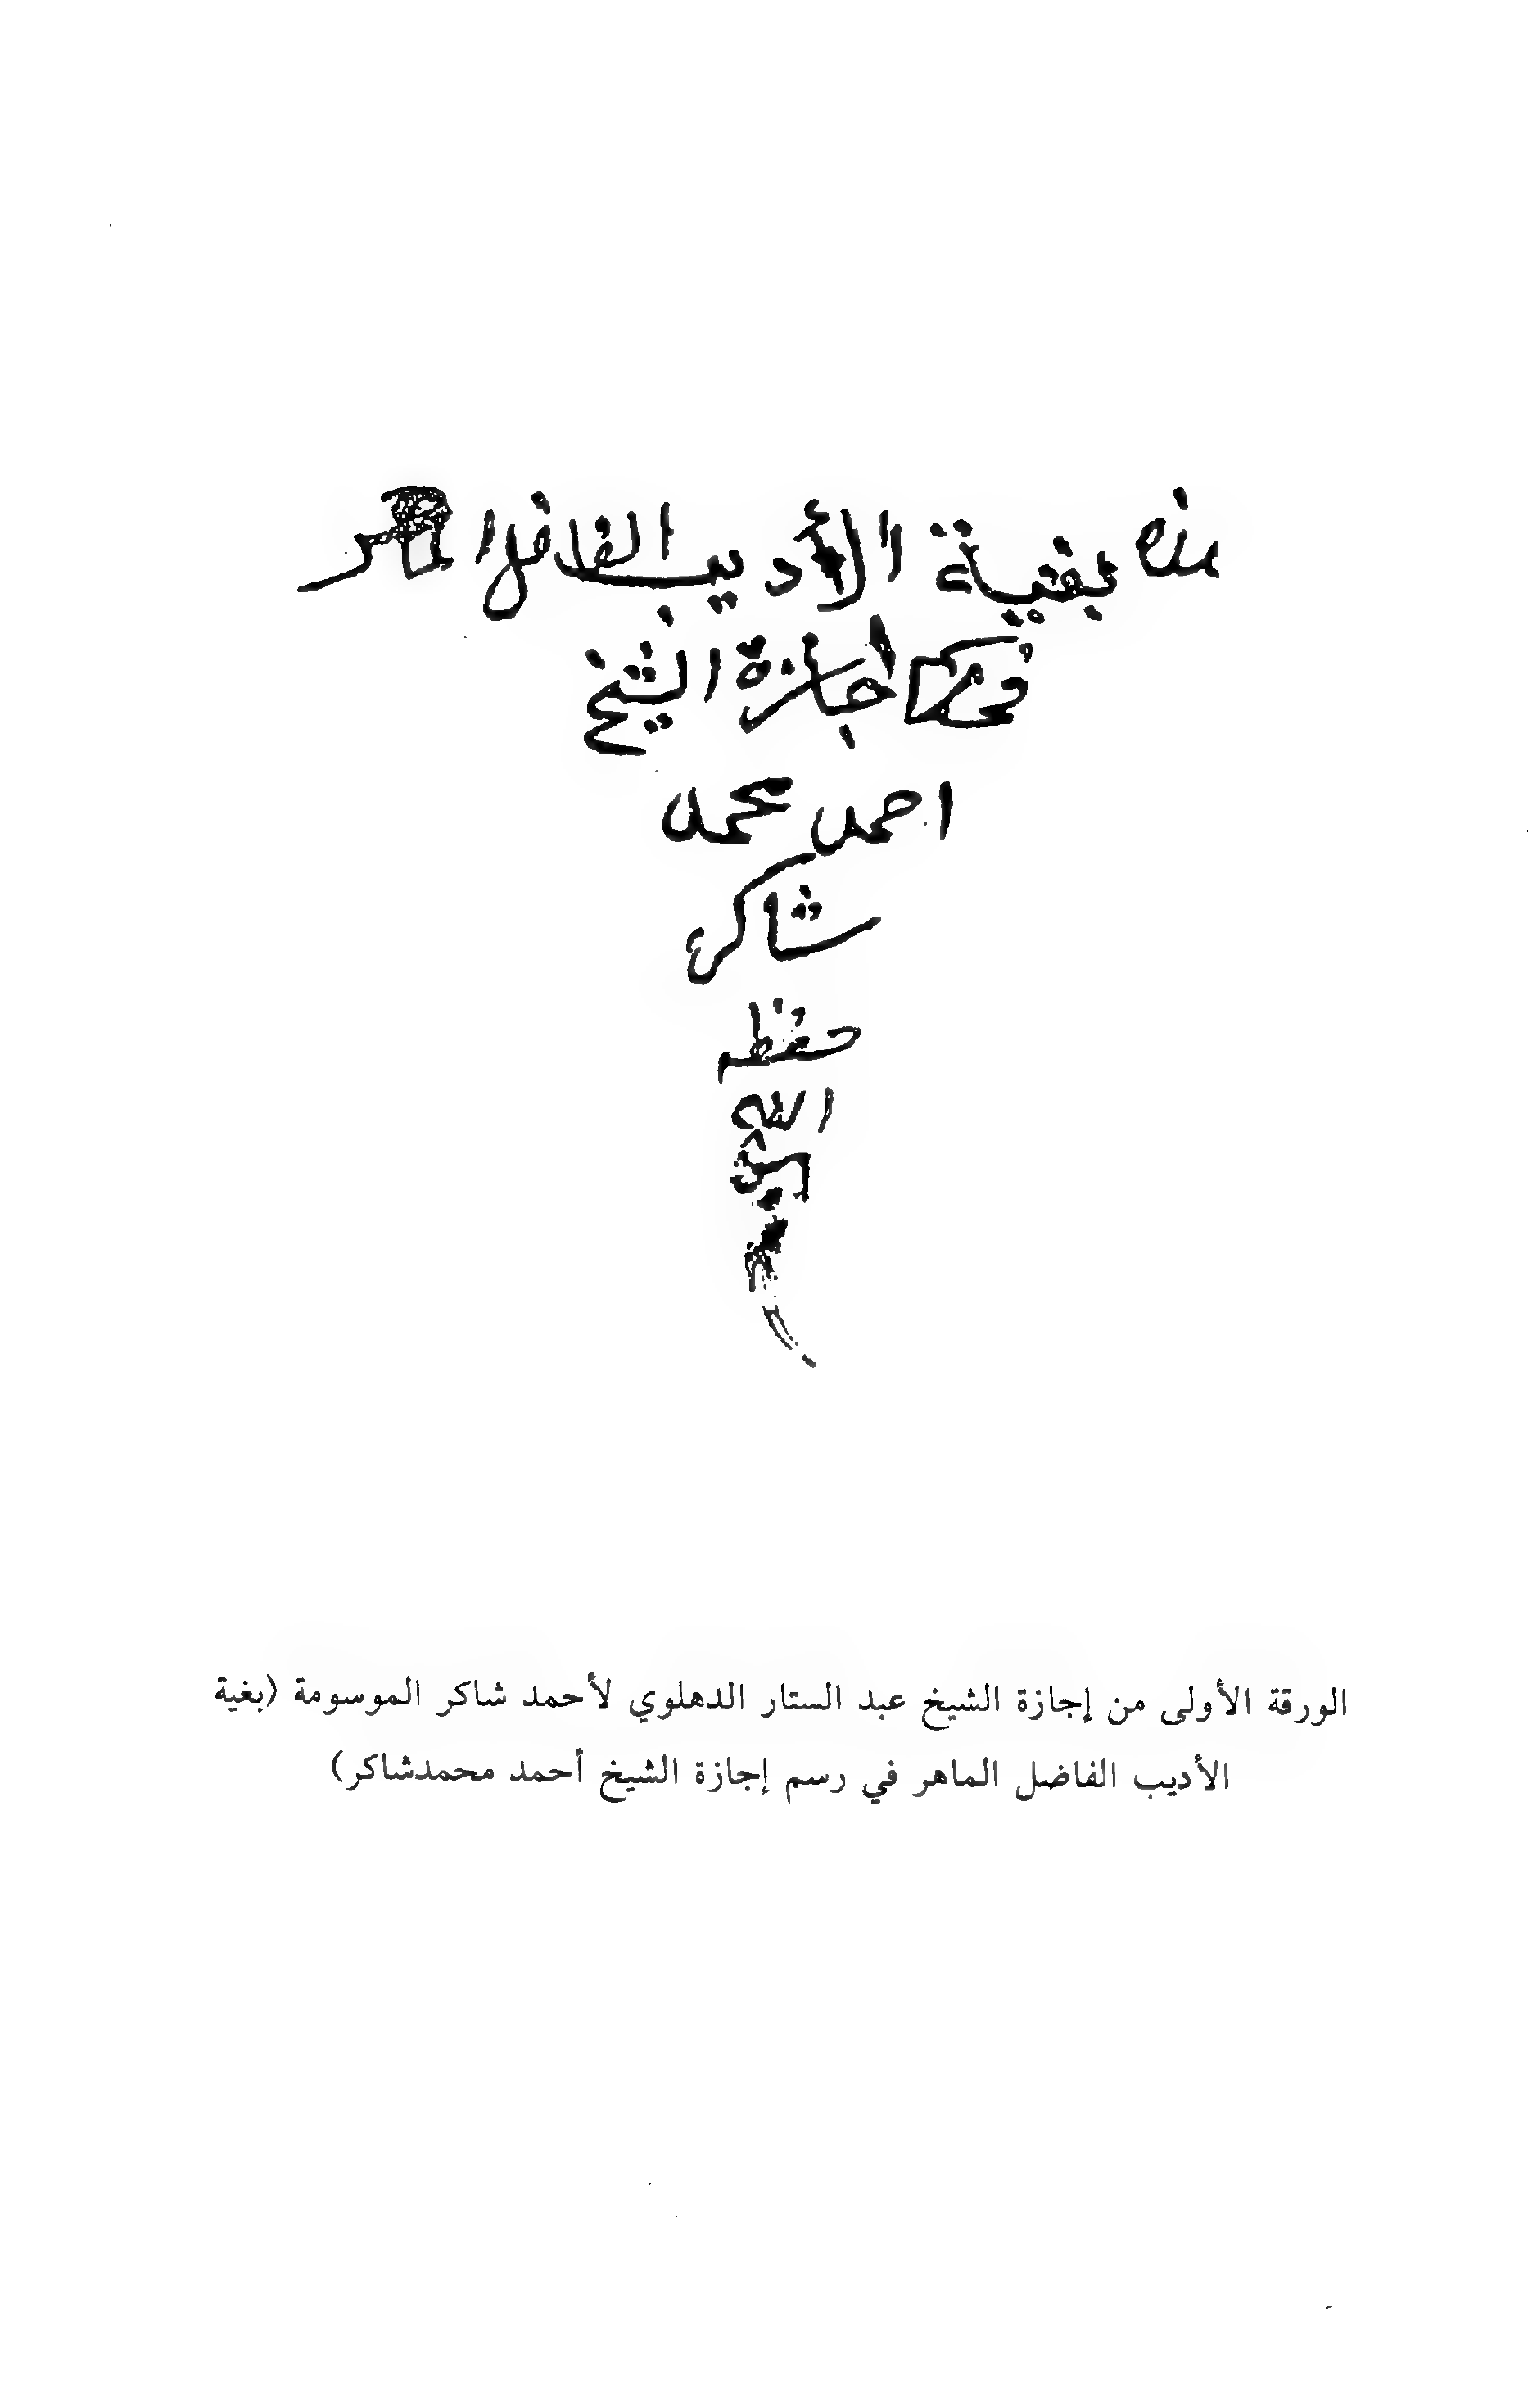 هذه بغية الأديب الفاضل الماهر
في رسم اجازة الشيخ
احمد محمد
شاكر
حفظه
الله
الورقة الأولى من إجازة الشيخ عبد الستار الدهلوي لأحمد شاكر الموسومة (بغية
الأديب الفاضل الماهر في رسم إجازة الشيخ أحمد محمدشاكر)